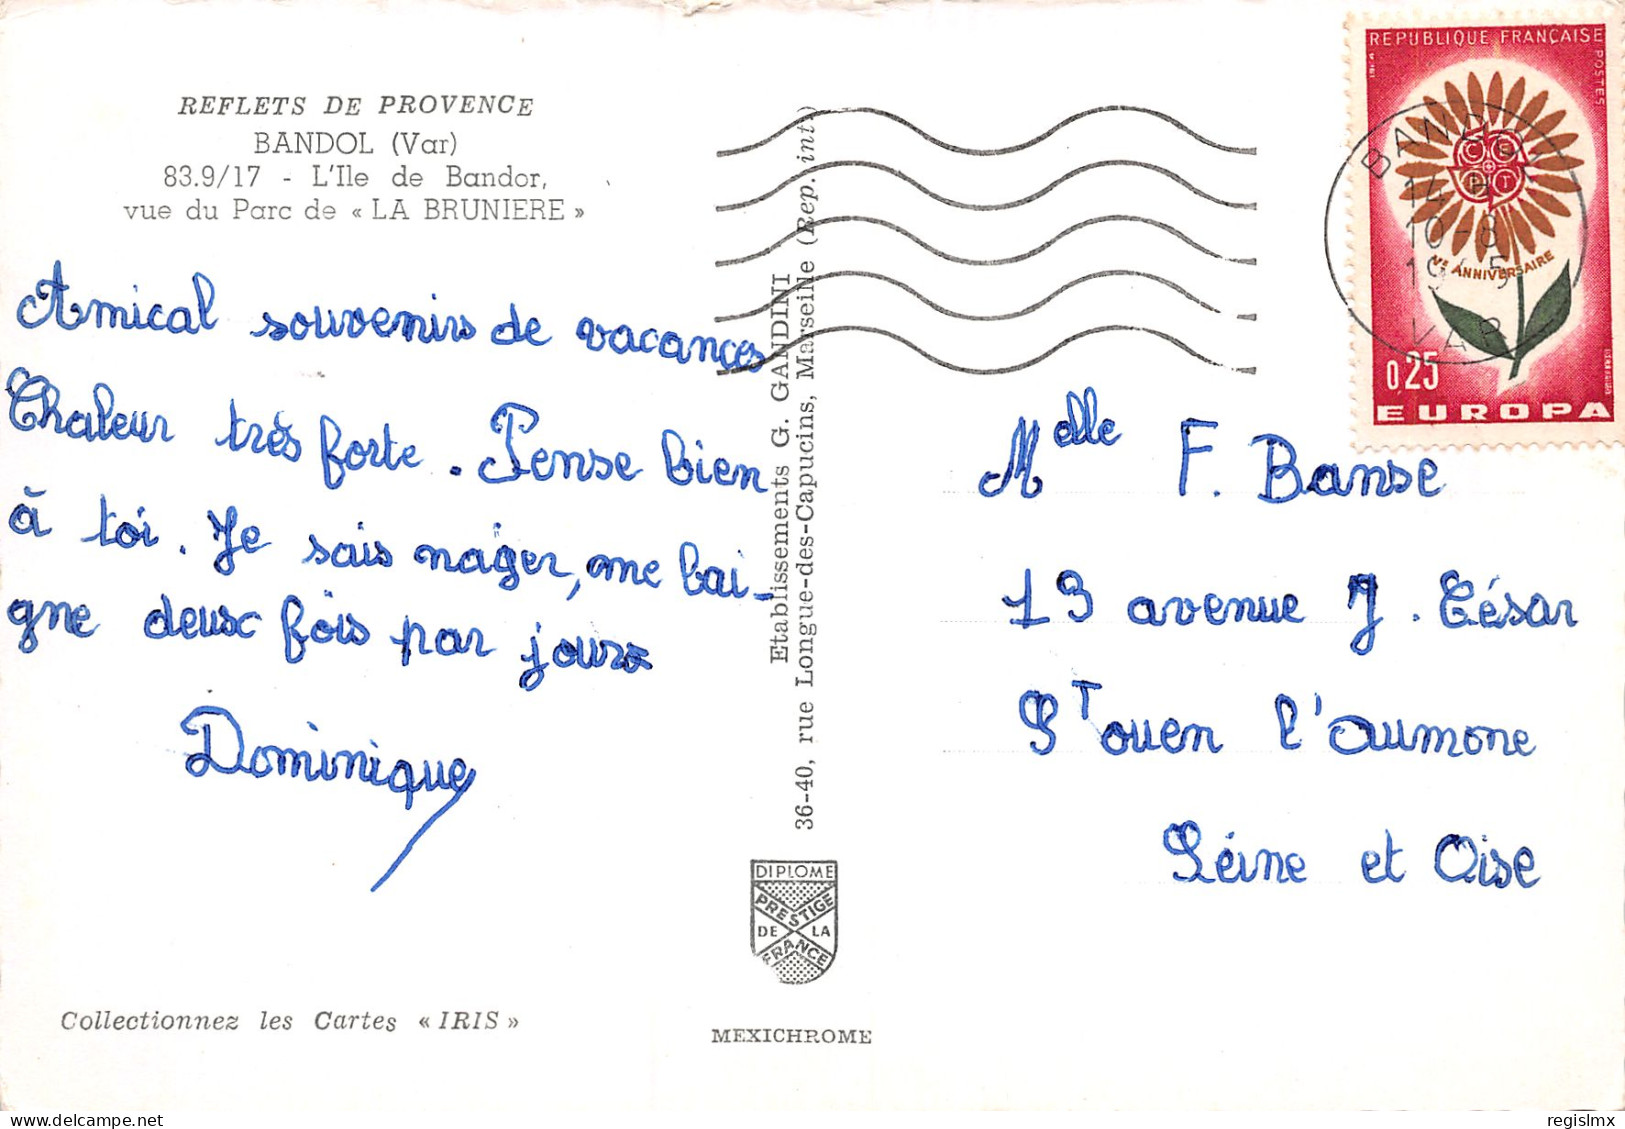 REFLETS DE PROVENCE
BANDOL (Var)
83.9/17 - L'Ile de Bandor,
vue du Parc de « LA BRUNIERE »
Amical souvenirs de vacances
Chaleur très forte. Pense bien
à toi. Je sais nager, me bai-
gne deux fois par jours
Dominique
Collectionnez les Cartes « IRIS »
Etablissements G. GANDINI
36-40, rue Longue-des-Capucins, Marseille (Rep. int.)
DIPLOME
PRESTIGE
DE LA
FRANCE
MEXICHROME
REPUBLIQUE FRANÇAISE
POSTES
C E
P T
Ve ANNIVERSAIRE
0,25
EUROPA
BANDOL
10-8
VAR
Melle F. Banse
13 avenue J. César
ST ouen l'Aumone
Séine et Oise
regislmx